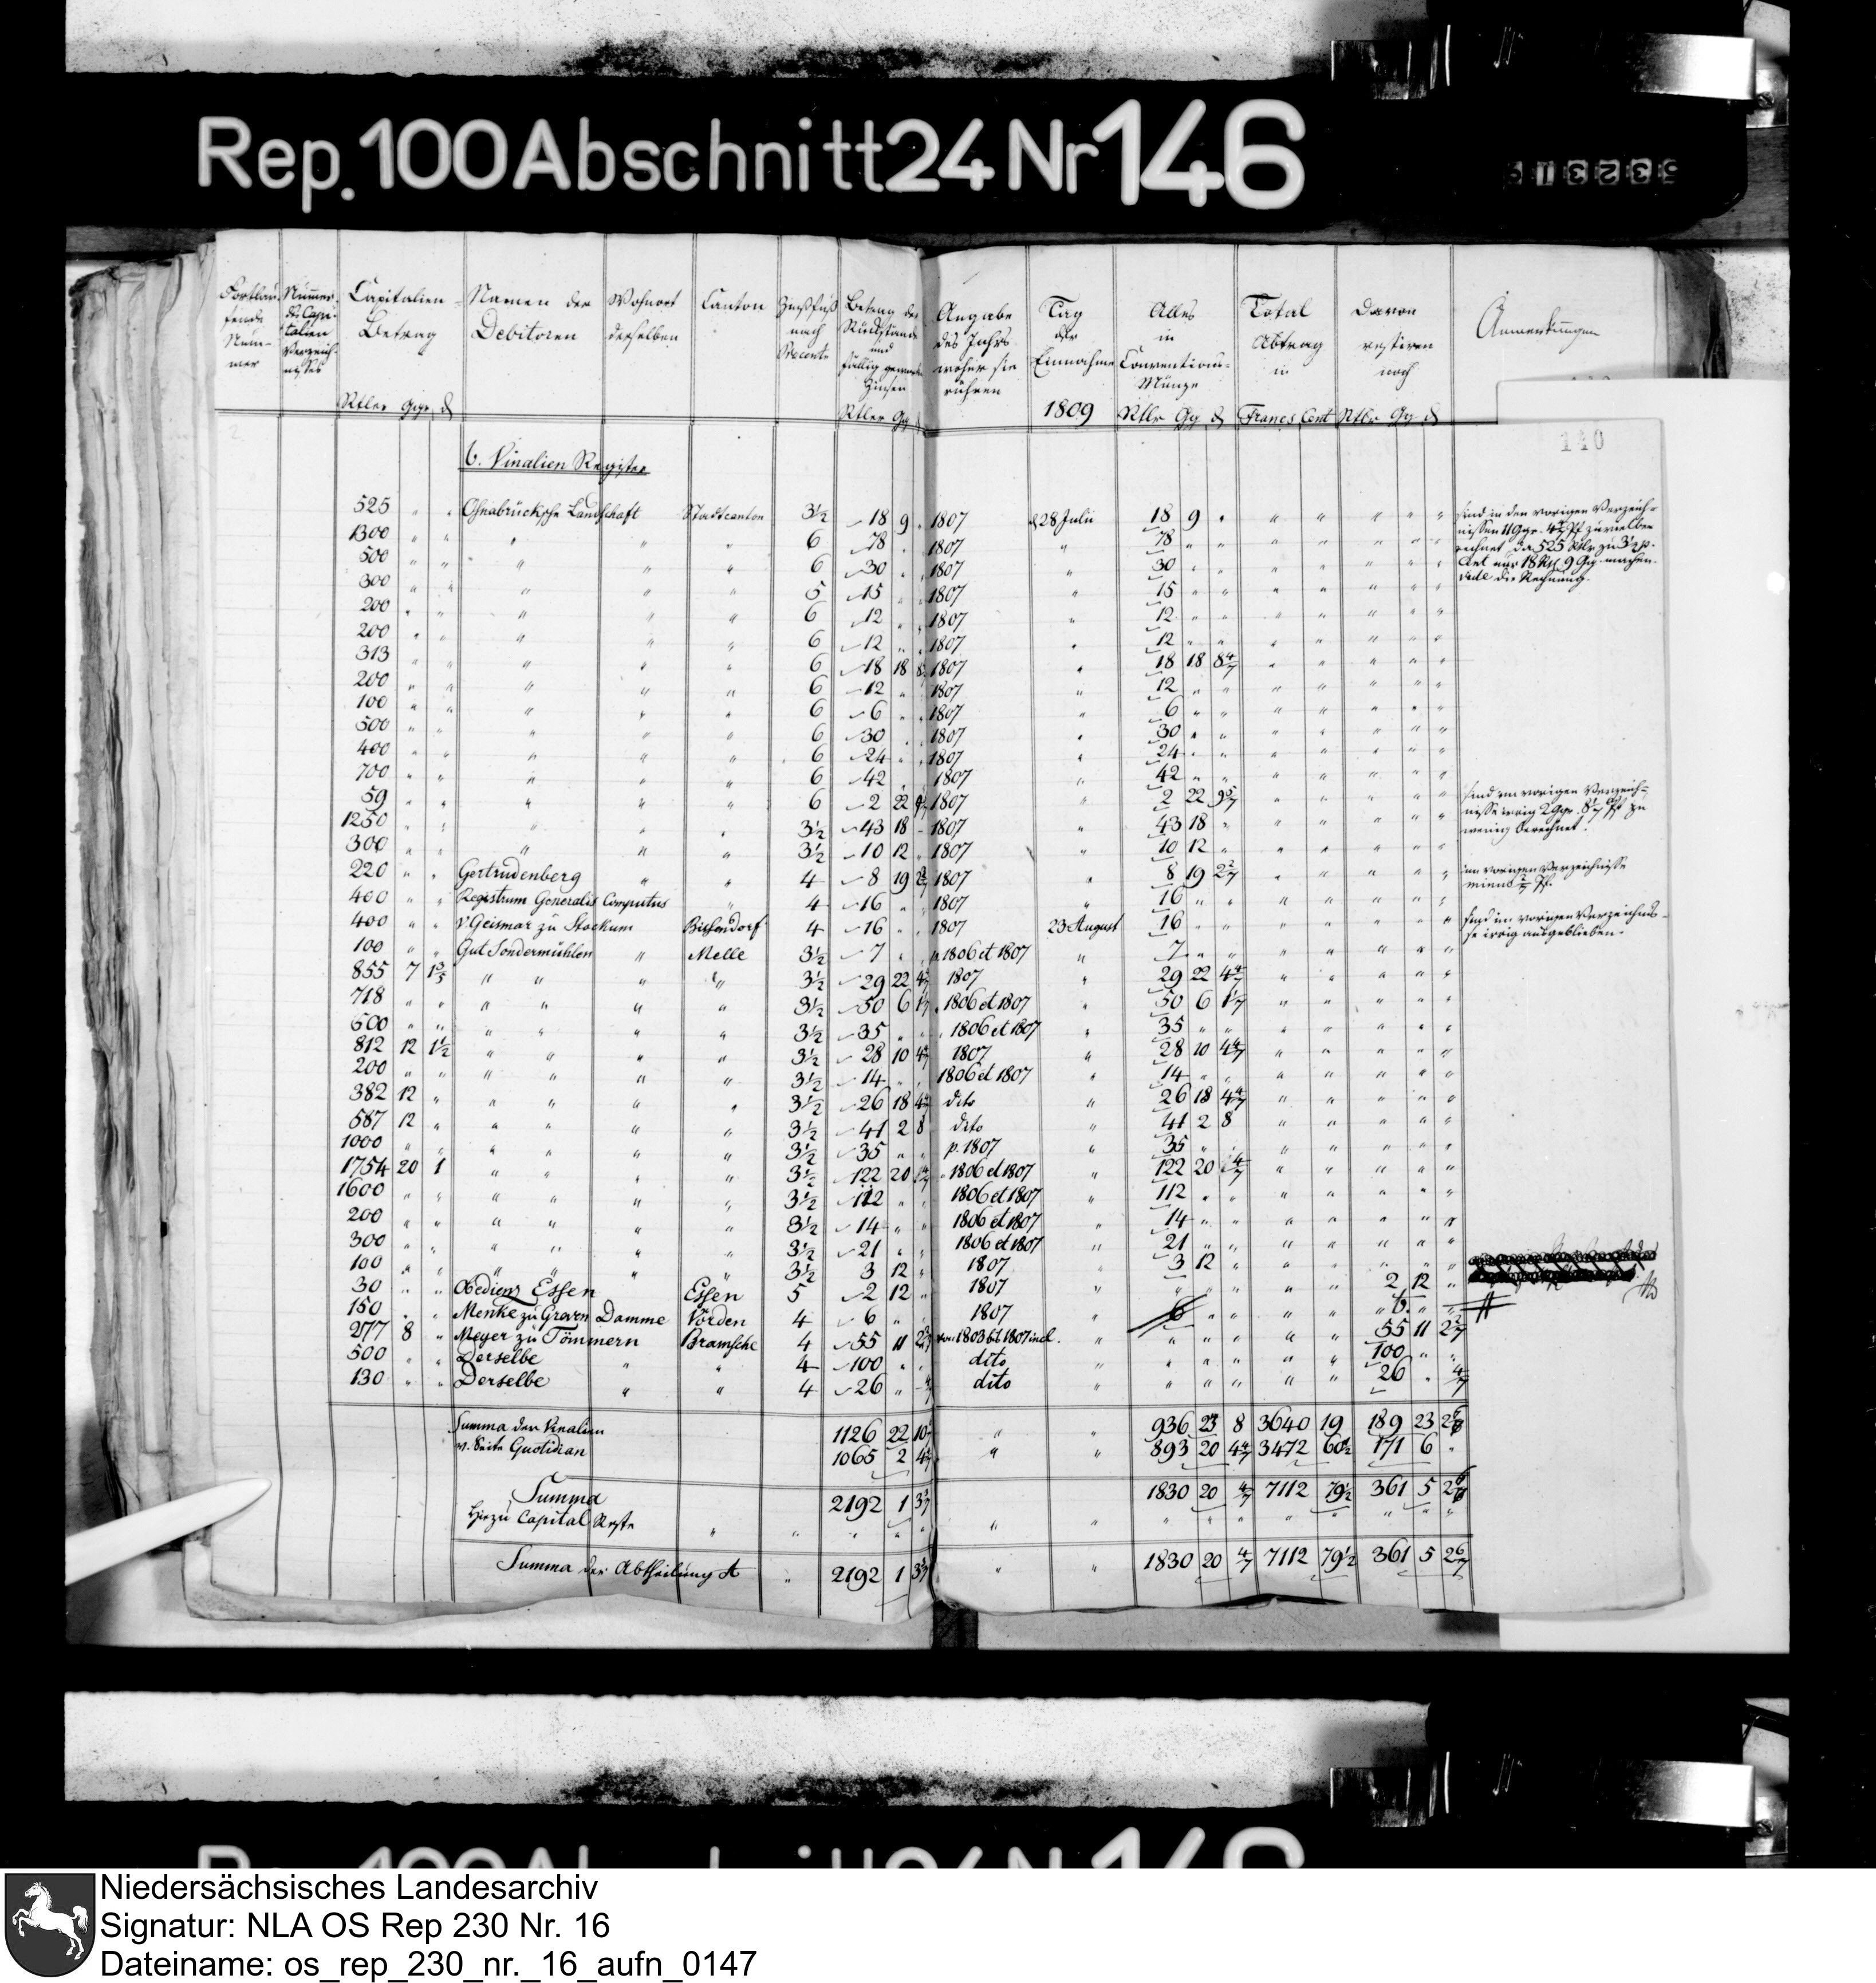 Rep. 100 Abschnitt 24 Nr 146
532319
Fortlaufende Nummer | Nummer des Capitalien Verzeichnisses | Capitalien Betrag | Namen der Debitoren | Wohnort derselben | Canton | Zinsfuß nach Procente | Betrag der Rückstände und fällig gewordenen Zinsen | Angabe des Jahrs woher sie rühren | Tag der Einnahme | Alles in Conventions-Münze | Total Abtrag in | Davon restiren noch | Anmerkungen
Rtler Ggr ₰ | Rtler Gg ₰ | 1809 | Rtlr Gg ₰ | Francs Cent | Rtlr Gg ₰
140
6. Vinalien Register
525 " " Osnabrücksche Landschaft Stadtcanton 3½ 18 9 " 1807 d 28 Julii 18 9 " " " " " " sind in den vorigen Verzeich-
nissen 11 Ggr. 4 4/7 Pf zu viel be
rechnet da 525 Rtlr zu 3½ p.
Cent nur 18 Rtl 9 Gg. machen.
vide die Rechnung.
1300 " " " " " 6 78 " " 1807 " 78 " " " " " " "
500 " " " " " 6 30 " " 1807 " 30 " " " " " " "
300 " " " " " 5 15 " " 1807 " 15 " " " " " " "
200 " " " " " 6 12 " " 1807 " 12 " " " " " " "
200 " " " " " 6 12 " " 1807 " 12 " " " " " " "
313 " " " " " 6 18 18 8 1807 " 18 18 8 4/7 " " " " "
200 " " " " " 6 12 " " 1807 " 12 " " " " " " "
100 " " " " " 6 6 " " 1807 " 6 " " " " " " "
500 " " " " " 6 30 " " 1807 " 30 " " " " " " "
400 " " " " " 6 24 " " 1807 " 24 " " " " " " "
700 " " " " " 6 42 " " 1807 " 42 " " " " " " "
59 " " " " " 6 2 22 9 5/7 1807 " 2 22 9 5/7 " " " " " sind im vorigen Verzeich-
nisse irrig 2 Ggr. 8 1/7 Pf zu
wenig berechnet.
1250 " " " " " 3½ 43 18 - 1807 " 43 18 " " " " " "
300 " " " " " 3½ 10 12 " 1807 " 10 12 " " " " " "
220 " " Gertrudenberg " " 4 8 19 2 2/7 1807 " 8 19 2 2/7 " " " " " im vorigen Verzeichnisse
400 " " Registrum Generalis Computus " 4 16 " " 1807 " 16 " " " " " " "
400 " " v. Geismar zu Stockum Bissendorf 4 16 " " 1807 23 August 16 " " " " " " " sind im vorigen Verzeichnis-
se irrig ausgeblieben.
100 " " Gut Sondermühlen " Melle 3½ 7 " " p. 1806 et 1807 " 7 " " " " " " "
855 7 1 3/5 " " " " 3½ 29 22 4 4/7 1807 " 29 22 4 4/7 " " " " "
718 " " " " " " 3½ 50 6 1 1/7 1806 et 1807 " 50 6 1 1/7 " " " " "
600 " " " " " " 3½ 35 " " 1806 et 1807 " 35 " " " " " " "
812 12 1½ " " " " 3½ 28 10 4 4/7 1807 " 28 10 4 4/7 " " " " "
200 " " " " " " 3½ 14 " " 1806 et 1807 " 14 " " " " " " "
382 12 " " " " " 3½ 26 18 4 4/7 dito " 26 18 4 4/7 " " " " "
587 12 " " " " " 3½ 41 2 8 dito " 41 2 8 " " " " "
1000 " " " " " " 3½ 35 " " p. 1807 " 35 " " " " " " "
1754 20 1 " " " " 3½ 122 20 1 4/7 1806 et 1807 " 122 20 1 4/7 " " " " "
1600 " " " " " " 3½ 112 " " 1806 et 1807 " 112 " " " " " " "
200 " " " " " " 3½ 14 " " 1806 et 1807 " 14 " " " " " " "
300 " " " " " " 3½ 21 " " 1806 et 1807 " 21 " " " " " " "
100 " " " " " " 3½ 3 12 " 1807 " 3 12 " " " " " "
30 " " Obedienz Essen Essen 5 2 12 " 1807 " " " " " " 2 12 "
150 " " Menke zu Greven Damme Vörden 4 6 " " 1807 " 6 " " " " " 6 " "
277 8 " Meyer zu Tömmern Bramsche 4 55 11 2 2/7 von 1803 bis 1807 incl. " " " " " " 55 11 2 2/7
500 " " Derselbe " " 4 100 " " dito " " " " " " 100 " "
130 " " Derselbe " " 4 26 " 4/7 dito " " " " " " 26 " 4/7
Summa der Vinalien 1126 22 10 " " 936 23 8 3640 19 189 23 2 6/7
v. Seite Quotidian 1065 2 4 4/7 " " 893 20 4 4/7 3472 60½ 171 6 "
Summa 2192 1 3 3/7 1830 20 4/7 7112 79½ 361 5 2 6/7
Hiezu Capital Reste " " " " " " " " " " " " " " "
Summa der Abtheilung A " 2192 1 3 3/7 " " 1830 20 4/7 7112 79½ 361 5 2 6/7
Niedersächsisches Landesarchiv
Signatur: NLA OS Rep 230 Nr. 16
Dateiname: os_rep_230_nr._16_aufn_0147